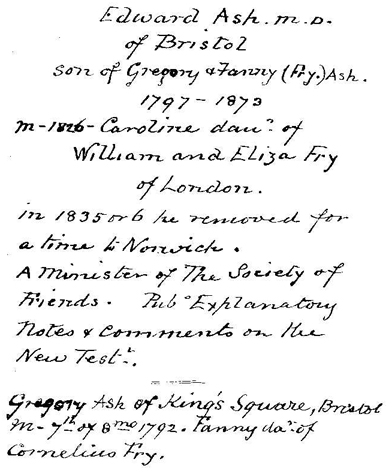 Edward Ash. M.D.
of Bristol
son of Gregory & Fanny (Fry.) Ash.
1797 - 1873
m - 1826 - Caroline daur. of
William and Eliza Fry
of London.
in 1835 or 6 he removed for
a time to Norwich.
A Minister of The Society of
Friends. Pub° Explanatory
Notes & comments on the
New Testt.
Gregory Ash of King's Square, Bristol
m - 7th of 8mo 1792. Fanny dar. of
Cornelius Fry.